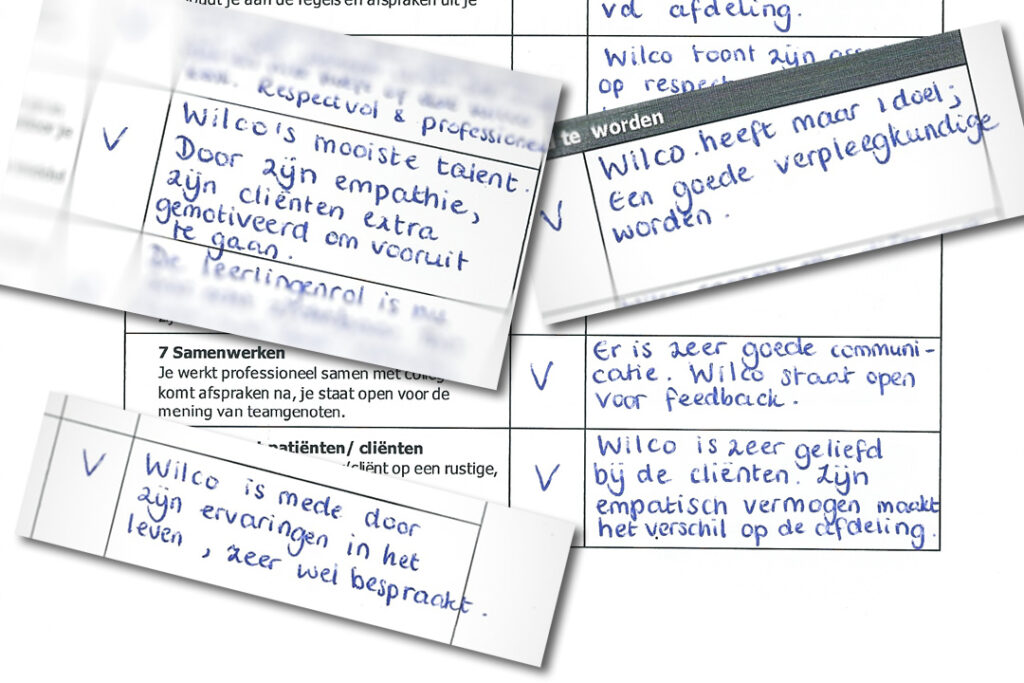 houdt je aan de regels en afspraken uit je
vd afdeling.
Wilco toont zijn
op respect
ook. Respectvol & professioneel
V
Wilco's mooiste talent.
Door zijn empathie,
zijn cliënten extra
gemotiveerd om vooruit
te gaan.
De leerlingenrol is nu
te worden
V
Wilco heeft maar 1 doel;
Een goede verpleegkundige
worden.
7 Samenwerken
Je werkt professioneel samen met
komt afspraken na, je staat open voor de
mening van teamgenoten.
V
Er is zeer goede communi-
catie. Wilco staat open
voor feedback.
patiënten/ cliënten
cliënt op een rustige,
V
Wilco is zeer geliefd
bij de cliënten. Zijn
empatisch vermogen maakt
het verschil op de afdeling.
V
Wilco is mede door
zijn ervaringen in het
leven, zeer wel bespraakt.